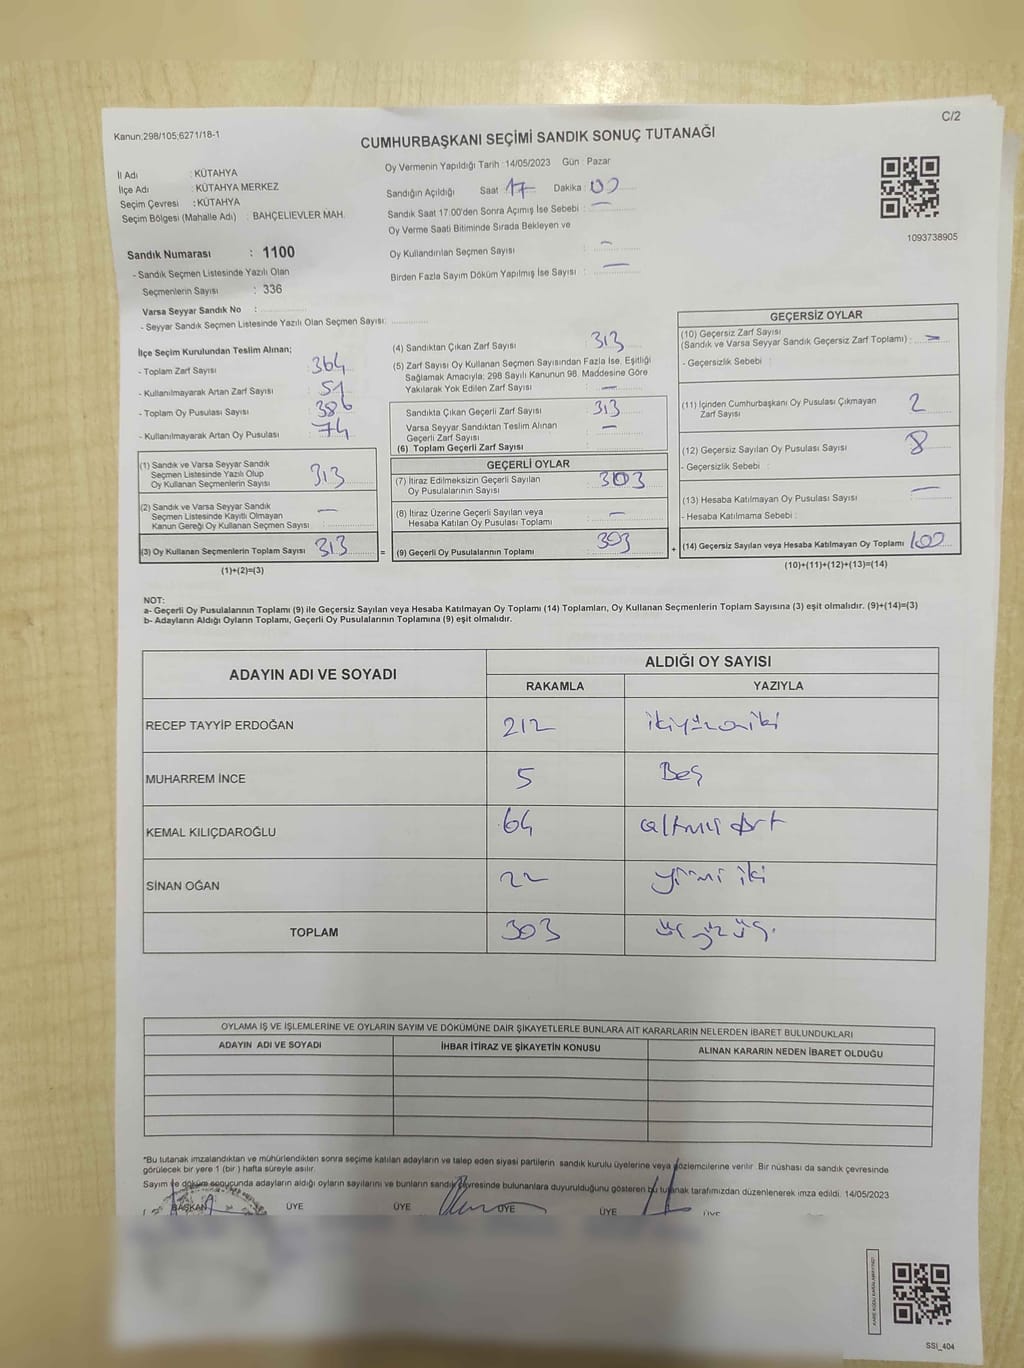 C/2
Kanun,298/105,6271/18-1
CUMHURBAŞKANI SEÇİMİ SANDIK SONUÇ TUTANAĞI
İl Adı : KÜTAHYA
İlçe Adı : KÜTAHYA MERKEZ
Seçim Çevresi : KÜTAHYA
Seçim Bölgesi (Mahalle Adı) : BAHÇELİEVLER MAH.
Sandık Numarası : 1100
- Sandık Seçmen Listesinde Yazılı Olan
Seçmenlerin Sayısı : 336
Varsa Seyyar Sandık No :
- Seyyar Sandık Seçmen Listesinde Yazılı Olan Seçmen Sayısı:
Oy Vermenin Yapıldığı Tarih : 14/05/2023 Gün : Pazar
Sandığın Açıldığı Saat 17 Dakika : 00
Sandık Saat 17:00'den Sonra Açımış İse Sebebi : —
Oy Verme Saati Bitiminde Sırada Bekleyen ve
Oy Kullandırılan Seçmen Sayısı : —
Birden Fazla Sayım Döküm Yapılmış İse Sayısı : —
1093738905
İlçe Seçim Kurulundan Teslim Alınan;
- Toplam Zarf Sayısı : 364
- Kullanılmayarak Artan Zarf Sayısı : 51
- Toplam Oy Pusulası Sayısı : 386
- Kullanılmayarak Artan Oy Pusulası : 74
(1) Sandık ve Varsa Seyyar Sandık
Seçmen Listesinde Yazılı Olup
Oy Kullanan Seçmenlerin Sayısı : 313
(2) Sandık ve Varsa Seyyar Sandık
Seçmen Listesinde Kayıtlı Olmayan
Kanun Gereği Oy Kullanan Seçmen Sayısı : —
(3) Oy Kullanan Seçmenlerin Toplam Sayısı : 313
(1)+(2)=(3)
=
(4) Sandıktan Çıkan Zarf Sayısı : 313
(5) Zarf Sayısı Oy Kullanan Seçmen Sayısından Fazla İse, Eşitliği
Sağlamak Amacıyla; 298 Sayılı Kanunun 98. Maddesine Göre
Yakılarak Yok Edilen Zarf Sayısı : —
Sandıkta Çıkan Geçerli Zarf Sayısı : 313
Varsa Seyyar Sandıktan Teslim Alınan
Geçerli Zarf Sayısı : —
(6) Toplam Geçerli Zarf Sayısı :
GEÇERLİ OYLAR
(7) İtiraz Edilmeksizin Geçerli Sayılan
Oy Pusulalarının Sayısı : 303
(8) İtiraz Üzerine Geçerli Sayılan veya
Hesaba Katılan Oy Pusulası Toplamı : —
(9) Geçerli Oy Pusulalarının Toplamı : 303
+
GEÇERSİZ OYLAR
(10) Geçersiz Zarf Sayısı
(Sandık ve Varsa Seyyar Sandık Geçersiz Zarf Toplamı) : —
- Geçersizlik Sebebi :
(11) İçinden Cumhurbaşkanı Oy Pusulası Çıkmayan
Zarf Sayısı : 2
(12) Geçersiz Sayılan Oy Pusulası Sayısı : 8
- Geçersizlik Sebebi :
(13) Hesaba Katılmayan Oy Pusulası Sayısı : —
- Hesaba Katılmama Sebebi :
(14) Geçersiz Sayılan veya Hesaba Katılmayan Oy Toplamı
(10)+(11)+(12)+(13)=(14)
NOT:
a- Geçerli Oy Pusulalarının Toplamı (9) ile Geçersiz Sayılan veya Hesaba Katılmayan Oy Toplamı (14) Toplamları, Oy Kullanan Seçmenlerin Toplam Sayısına (3) eşit olmalıdır. (9)+(14)=(3)
b- Adayların Aldığı Oyların Toplamı, Geçerli Oy Pusulalarının Toplamına (9) eşit olmalıdır.
ADAYIN ADI VE SOYADI ALDIĞI OY SAYISI
RAKAMLA YAZIYLA
RECEP TAYYİP ERDOĞAN 212 ikiyüzoniki
MUHARREM İNCE 5 Beş
KEMAL KILIÇDAROĞLU 64 altmış dört
SİNAN OĞAN 22 yirmi iki
TOPLAM 303 üç yüz üç.
OYLAMA İŞ VE İŞLEMLERİNE VE OYLARIN SAYIM VE DÖKÜMÜNE DAİR ŞİKAYETLERLE BUNLARA AİT KARARLARIN NELERDEN İBARET BULUNDUKLARI
ADAYIN ADI VE SOYADI İHBAR İTİRAZ VE ŞİKAYETİN KONUSU ALINAN KARARIN NEDEN İBARET OLDUĞU
*Bu tutanak imzalandıktan ve mühürlendikten sonra seçime katılan adayların ve talep eden siyasi partilerin sandık kurulu üyelerine veya gözlemcilerine verilir. Bir nüshası da sandık çevresinde
görülecek bir yere 1 (bir ) hafta süreyle asılır.
Sayım ve döküm sonucunda adayların aldığı oyların sayılarını ve bunların sandık çevresinde bulunanlara duyurulduğunu gösteren bu tutanak tarafımızdan düzenlenerek imza edildi. 14/05/2023
BAŞKAN ÜYE ÜYE ÜYE ÜYE ÜYE
SSI_404